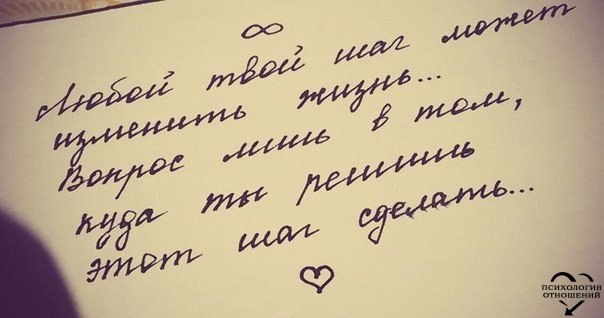 ∞
Любой твой шаг может
изменить жизнь...
Вопрос лишь в том,
куда ты решишь
этот шаг сделать...
♡
ПСИХОЛОГИЯ
ОТНОШЕНИЙ